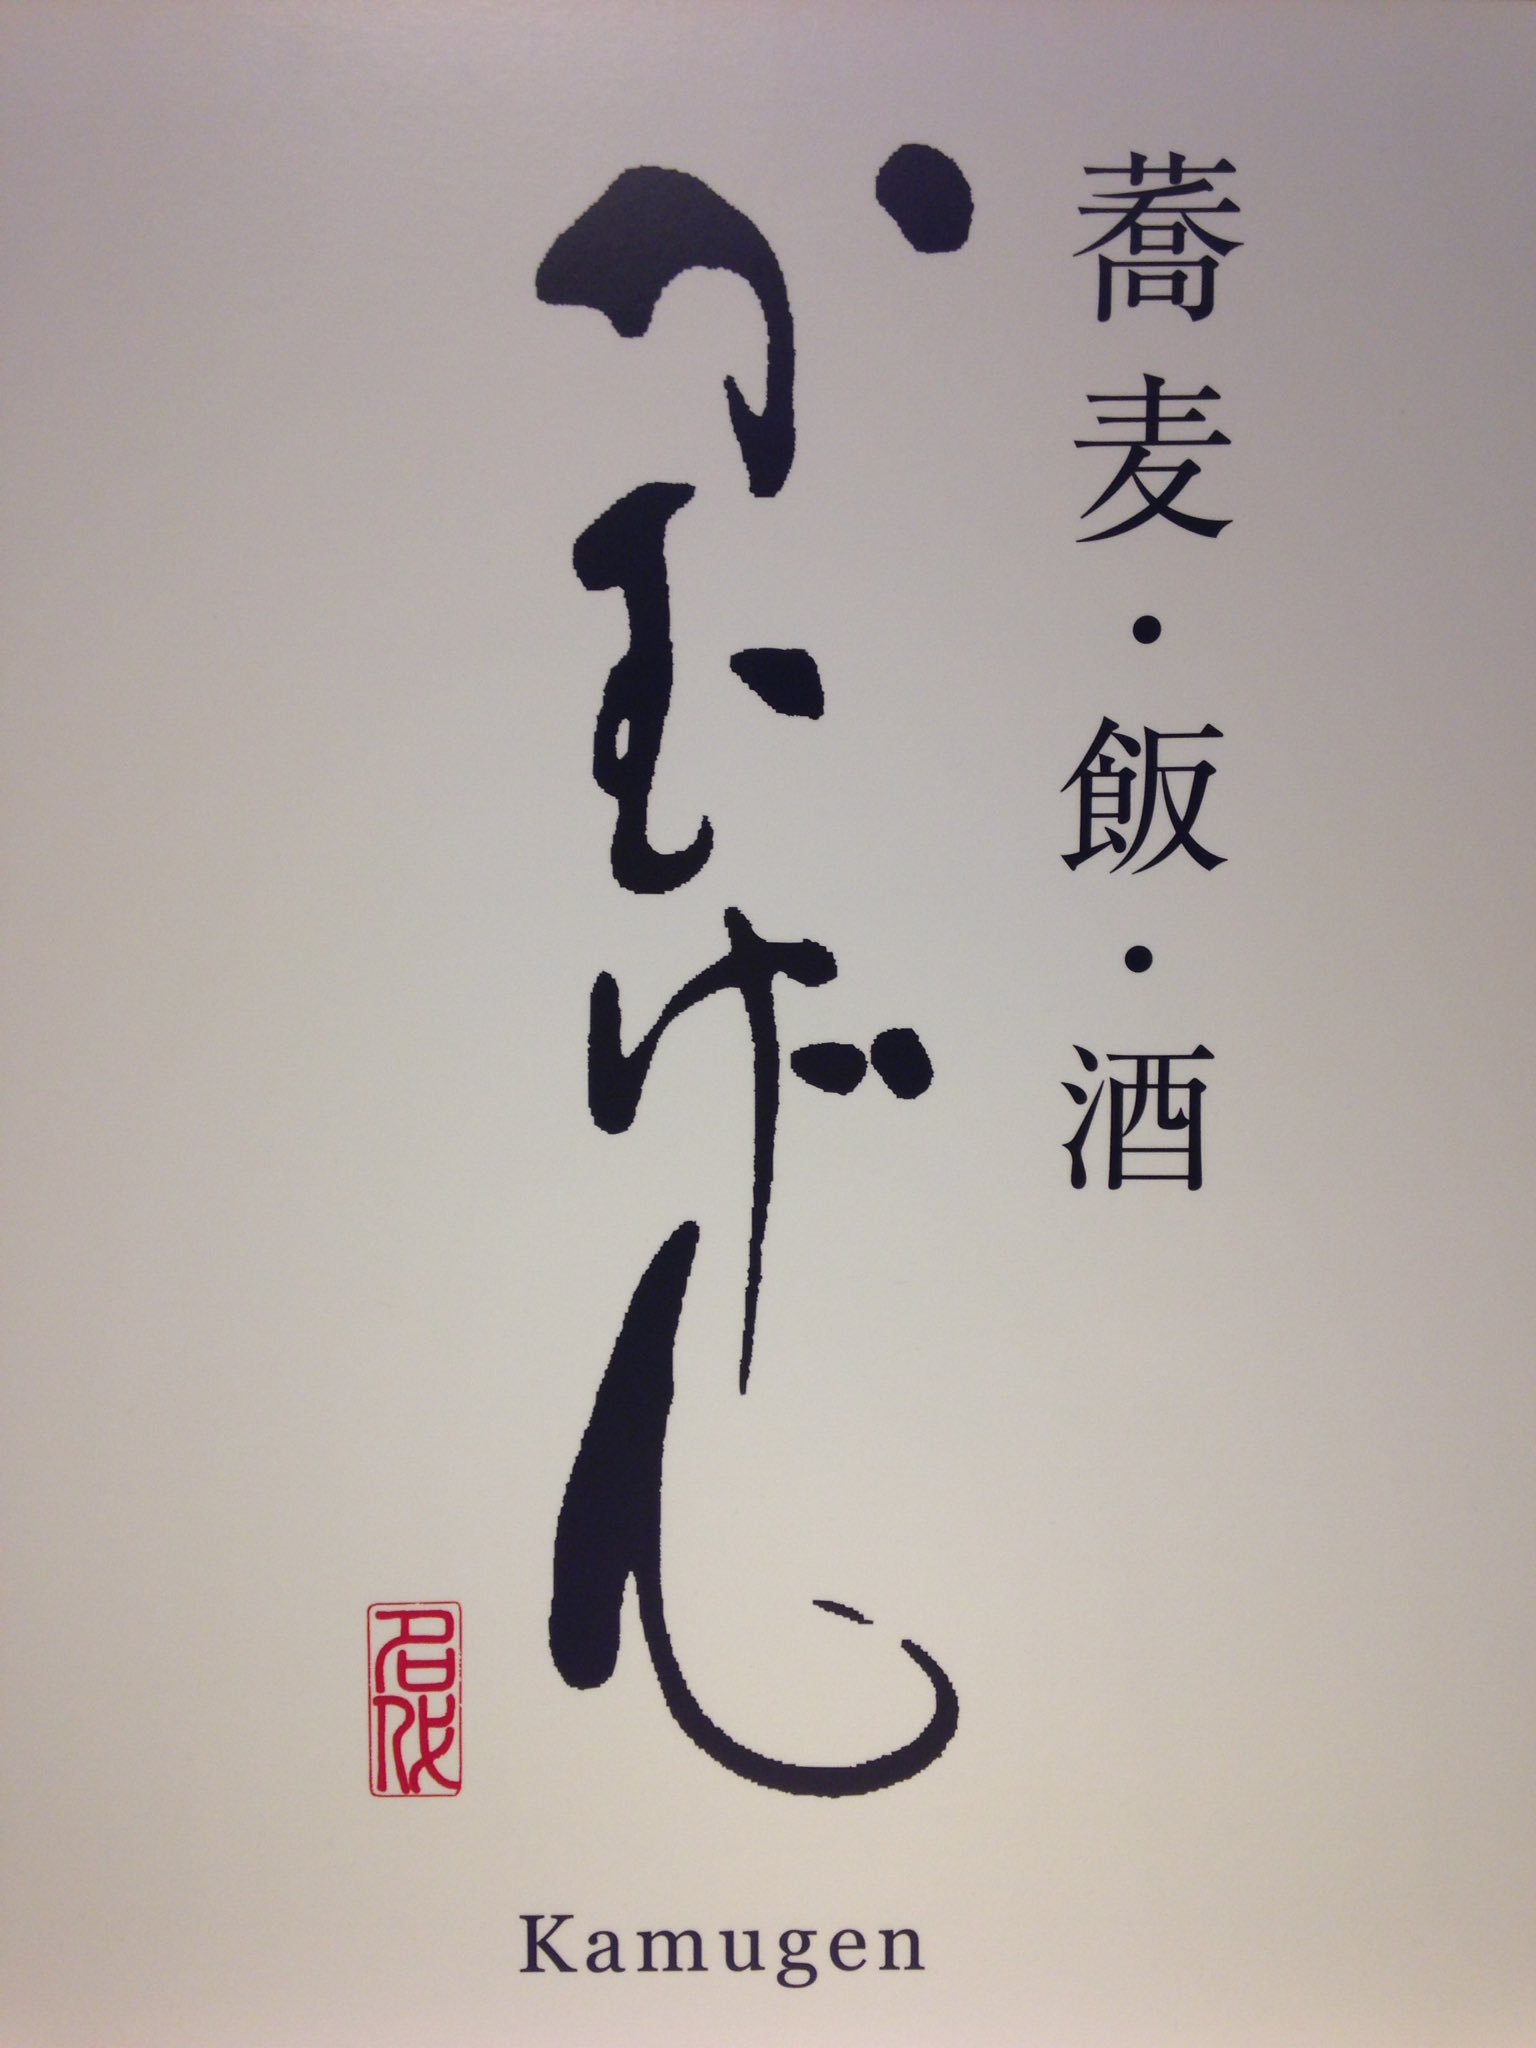 蕎麦・飯・酒
かむげん
名代
Kamugen